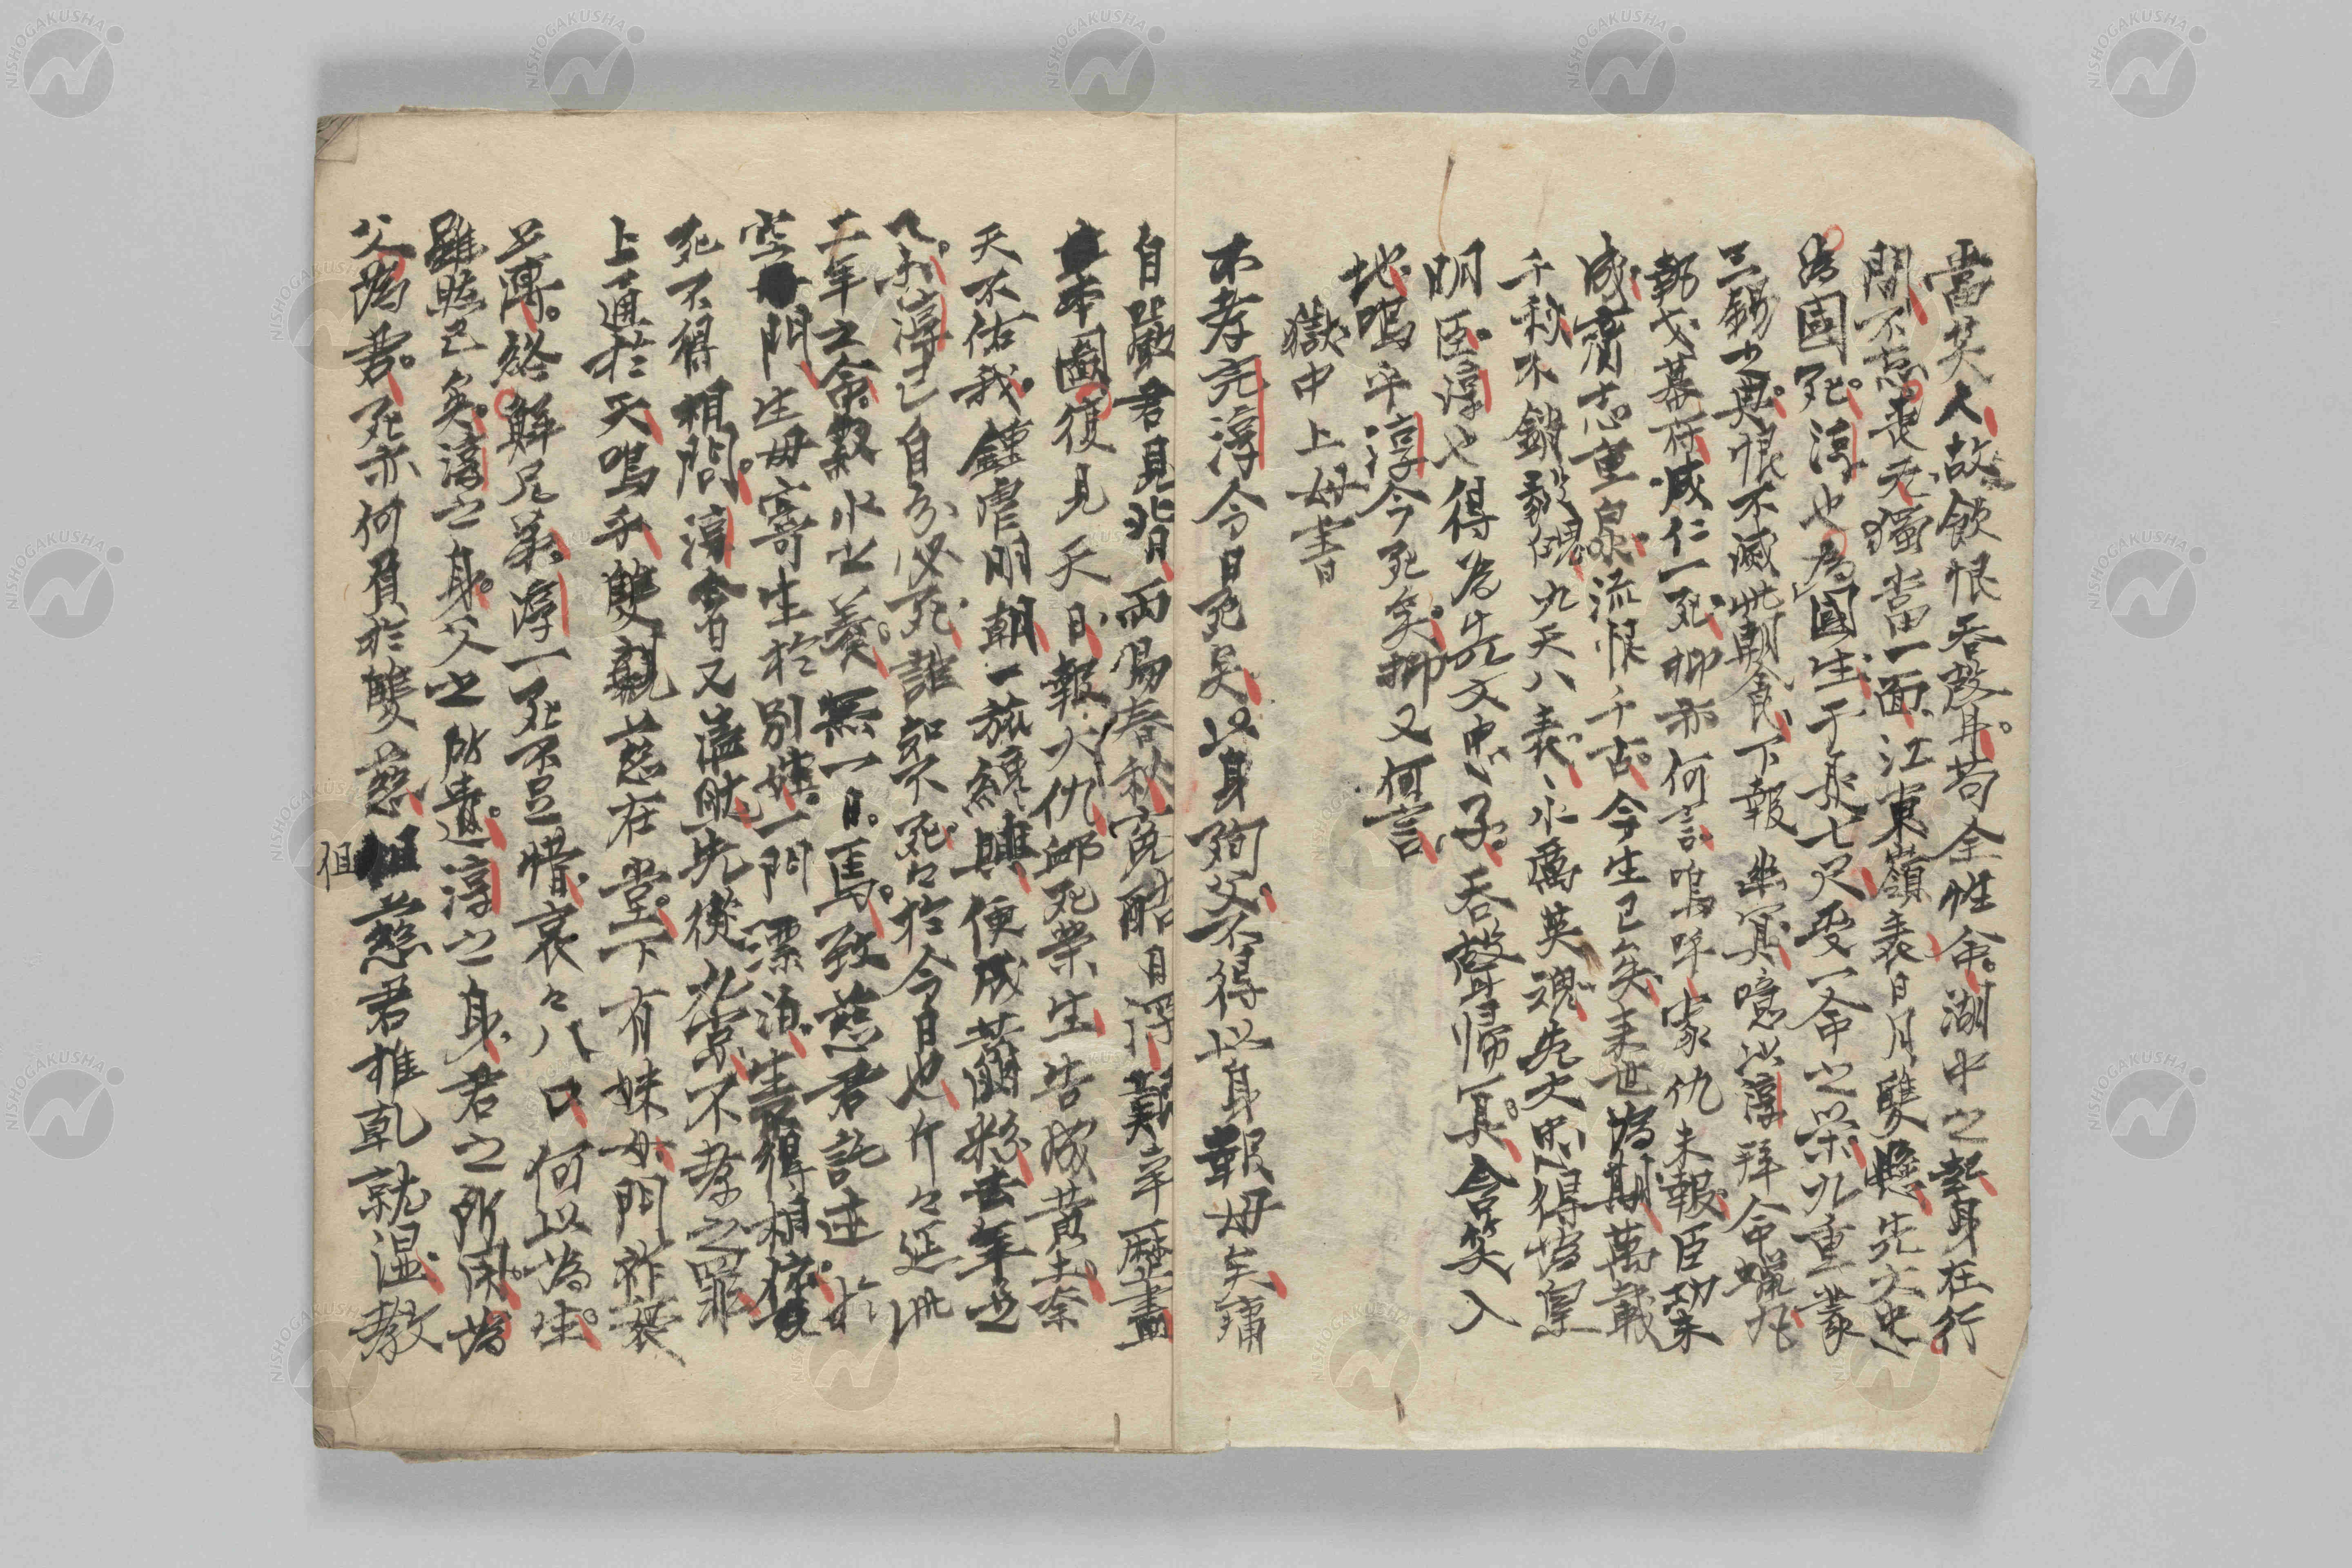 當笑人故飲恨吞聲耳苟全性命湖中之起身在行
間不忘喪元獨當一面江東嶺表日月雙懸先文忠
為國死淳也為國生于長七尺受一命之榮九重蒙
三錫之典恨不滅此朝食下報幽冥噫以淳拜命蠟丸
執戈幕府成仁一死抑亦何言嗚呼家仇未報臣功未
成賫志重泉流恨千古今生已矣来世為期萬載
千秋不銷毅魄九天八表永厲英魂先文忠得皇
明臣淳也得為先文忠子吞聲帰冥含笑入
地嗚乎淳今死矣抑又何言
獄中上母書
不孝完淳今日死矣以身殉父不得以身報母矣痛
自嚴君見背兩易春秋冤酷日深艱辛歴盡
本圖復見天日報大仇卹死榮生告成黄土奈
天不佑我鍾虐明朝一旅纔興便成虀粉去年之
淳已自分必死誰知不死々於今日也斤々延此
二年之命菽水之養無一日焉致慈君託迹於
空門生母寄生於別姓一門漂泊生不得相依
死不得相問淳今日又溘然先從九京不孝之罪
上通於天嗚乎雙親慈在堂下有妹女門祚衰
薄終鮮兄弟淳一死不足惜哀々八口何以為生
雖然已矣淳之身父之所遺淳之身君之所用為
父為君死亦何負於雙慈但慈君推乾就濕教
但